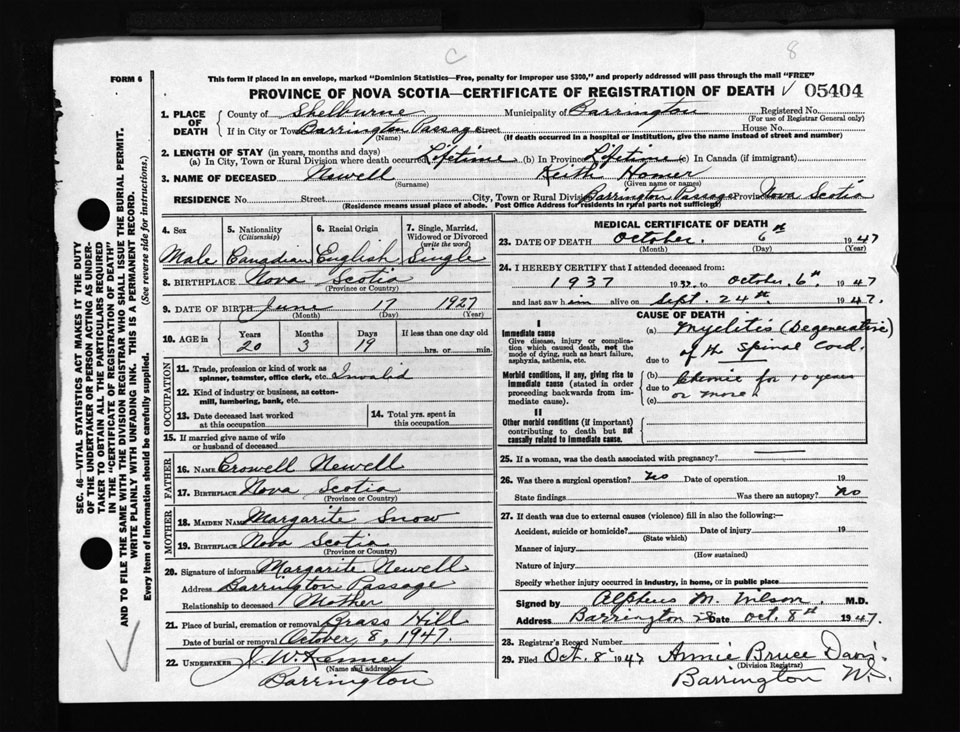 C
8
FORM 6
This form if placed in an envelope, marked "Dominion Statistics—Free, penalty for improper use $300," and properly addressed will pass through the mail "FREE"
PROVINCE OF NOVA SCOTIA—CERTIFICATE OF REGISTRATION OF DEATH √ 05404
1. PLACE OF DEATH
County of Shelburne Municipality of Barrington Registered No.
(For use of Registrar General only)
If in City or Town Barrington Passage Street House No.
(Name) (If death occurred in a hospital or institution, give the name instead of street and number)
2. LENGTH OF STAY (in years, months and days)
(a) In City, Town or Rural Division where death occurred Lifetime (b) In Province Lifetime (c) In Canada (if immigrant)
3. NAME OF DECEASED Newell Keith Homer
(Surname) (Given name or names)
RESIDENCE No. Street City, Town or Rural Division Barrington Passage Province Nova Scotia
(Residence means usual place of abode. Post Office Address for residents in rural parts not sufficient)
4. Sex
Male
5. Nationality
(Citizenship)
Canadian
6. Racial Origin
English
7. Single, Married, Widowed or Divorced
(write the word)
Single
8. BIRTHPLACE Nova Scotia
(Province or Country)
9. DATE OF BIRTH June 17 1927
(Month) (Day) (Year)
10. AGE in Years Months Days If less than one day old
20 3 19 hrs. or min.
OCCUPATION
11. Trade, profession or kind of work as
spinner, teamster, office clerk, etc. Invalid
12. Kind of industry or business, as cotton-
mill, lumbering, bank, etc.
13. Date deceased last worked
at this occupation
14. Total yrs. spent in
this occupation
15. If married give name of wife
or husband of deceased
FATHER
16. NAME Crowell Newell
17. Birthplace Nova Scotia
(Province or Country)
MOTHER
18. MAIDEN NAME Margarite Snow
19. Birthplace Nova Scotia
(Province or Country)
20. Signature of informant Margarite Newell
Address Barrington Passage
Relationship to deceased Mother
21. Place of burial, cremation or removal Brass Hill
Date of burial or removal October 8, 1947.
22. UNDERTAKER J. W. Kenney
(Name and address)
Barrington
MEDICAL CERTIFICATE OF DEATH
23. DATE OF DEATH October. 6th 1947
(Month) (Day) (Year)
24. I HEREBY CERTIFY that I attended deceased from:
1937 1937. to October. 6th 1947
and last saw him alive on Sept. 24th 1947.
CAUSE OF DEATH
I
Immediate cause
Give disease, injury or compli-
cation which caused death, not the
mode of dying, such as heart failure,
asphyxia, asthenia, etc.
(a) Myelitis (Degenerative)
due to of the Spinal Cord.
Morbid conditions, if any, giving rise to
immediate cause (stated in order
proceeding backwards from im-
mediate cause).
(b) Chronic for 10 years
due to or more
(c)
II
Other morbid conditions (if important)
contributing to death but not
causally related to immediate cause.
25. If a woman, was the death associated with pregnancy?
26. Was there a surgical operation? no Date of operation 19
State findings Was there an autopsy? no
27. If death was due to external causes (violence) fill in also the following:—
Accident, suicide or homicide? Date of injury 19
(State which)
Manner of injury
(How sustained)
Nature of injury
Specify whether injury occurred in industry, in home, or in public place
Signed by Alpheus M. Wilson, M.D.
Address Barrington Date Oct. 8th 1947
28. Registrar's Record Number
29. Filed Oct. 8 1947 Annie Bruce Davis
(Division Registrar)
Barrington N.S.
SEC. 46—VITAL STATISTICS ACT MAKES IT THE DUTY
OF THE UNDERTAKER OR PERSON ACTING AS UNDER-
TAKER TO OBTAIN ALL THE PARTICULARS REQUIRED
IN THE "CERTIFICATE OF REGISTRATION OF DEATH"
AND TO FILE THE SAME WITH THE DIVISION REGISTRAR WHO SHALL ISSUE THE BURIAL PERMIT.
WRITE PLAINLY WITH UNFADING INK. THIS IS A PERMANENT RECORD.
Every item of information should be carefully supplied. (See reverse side for instructions.)